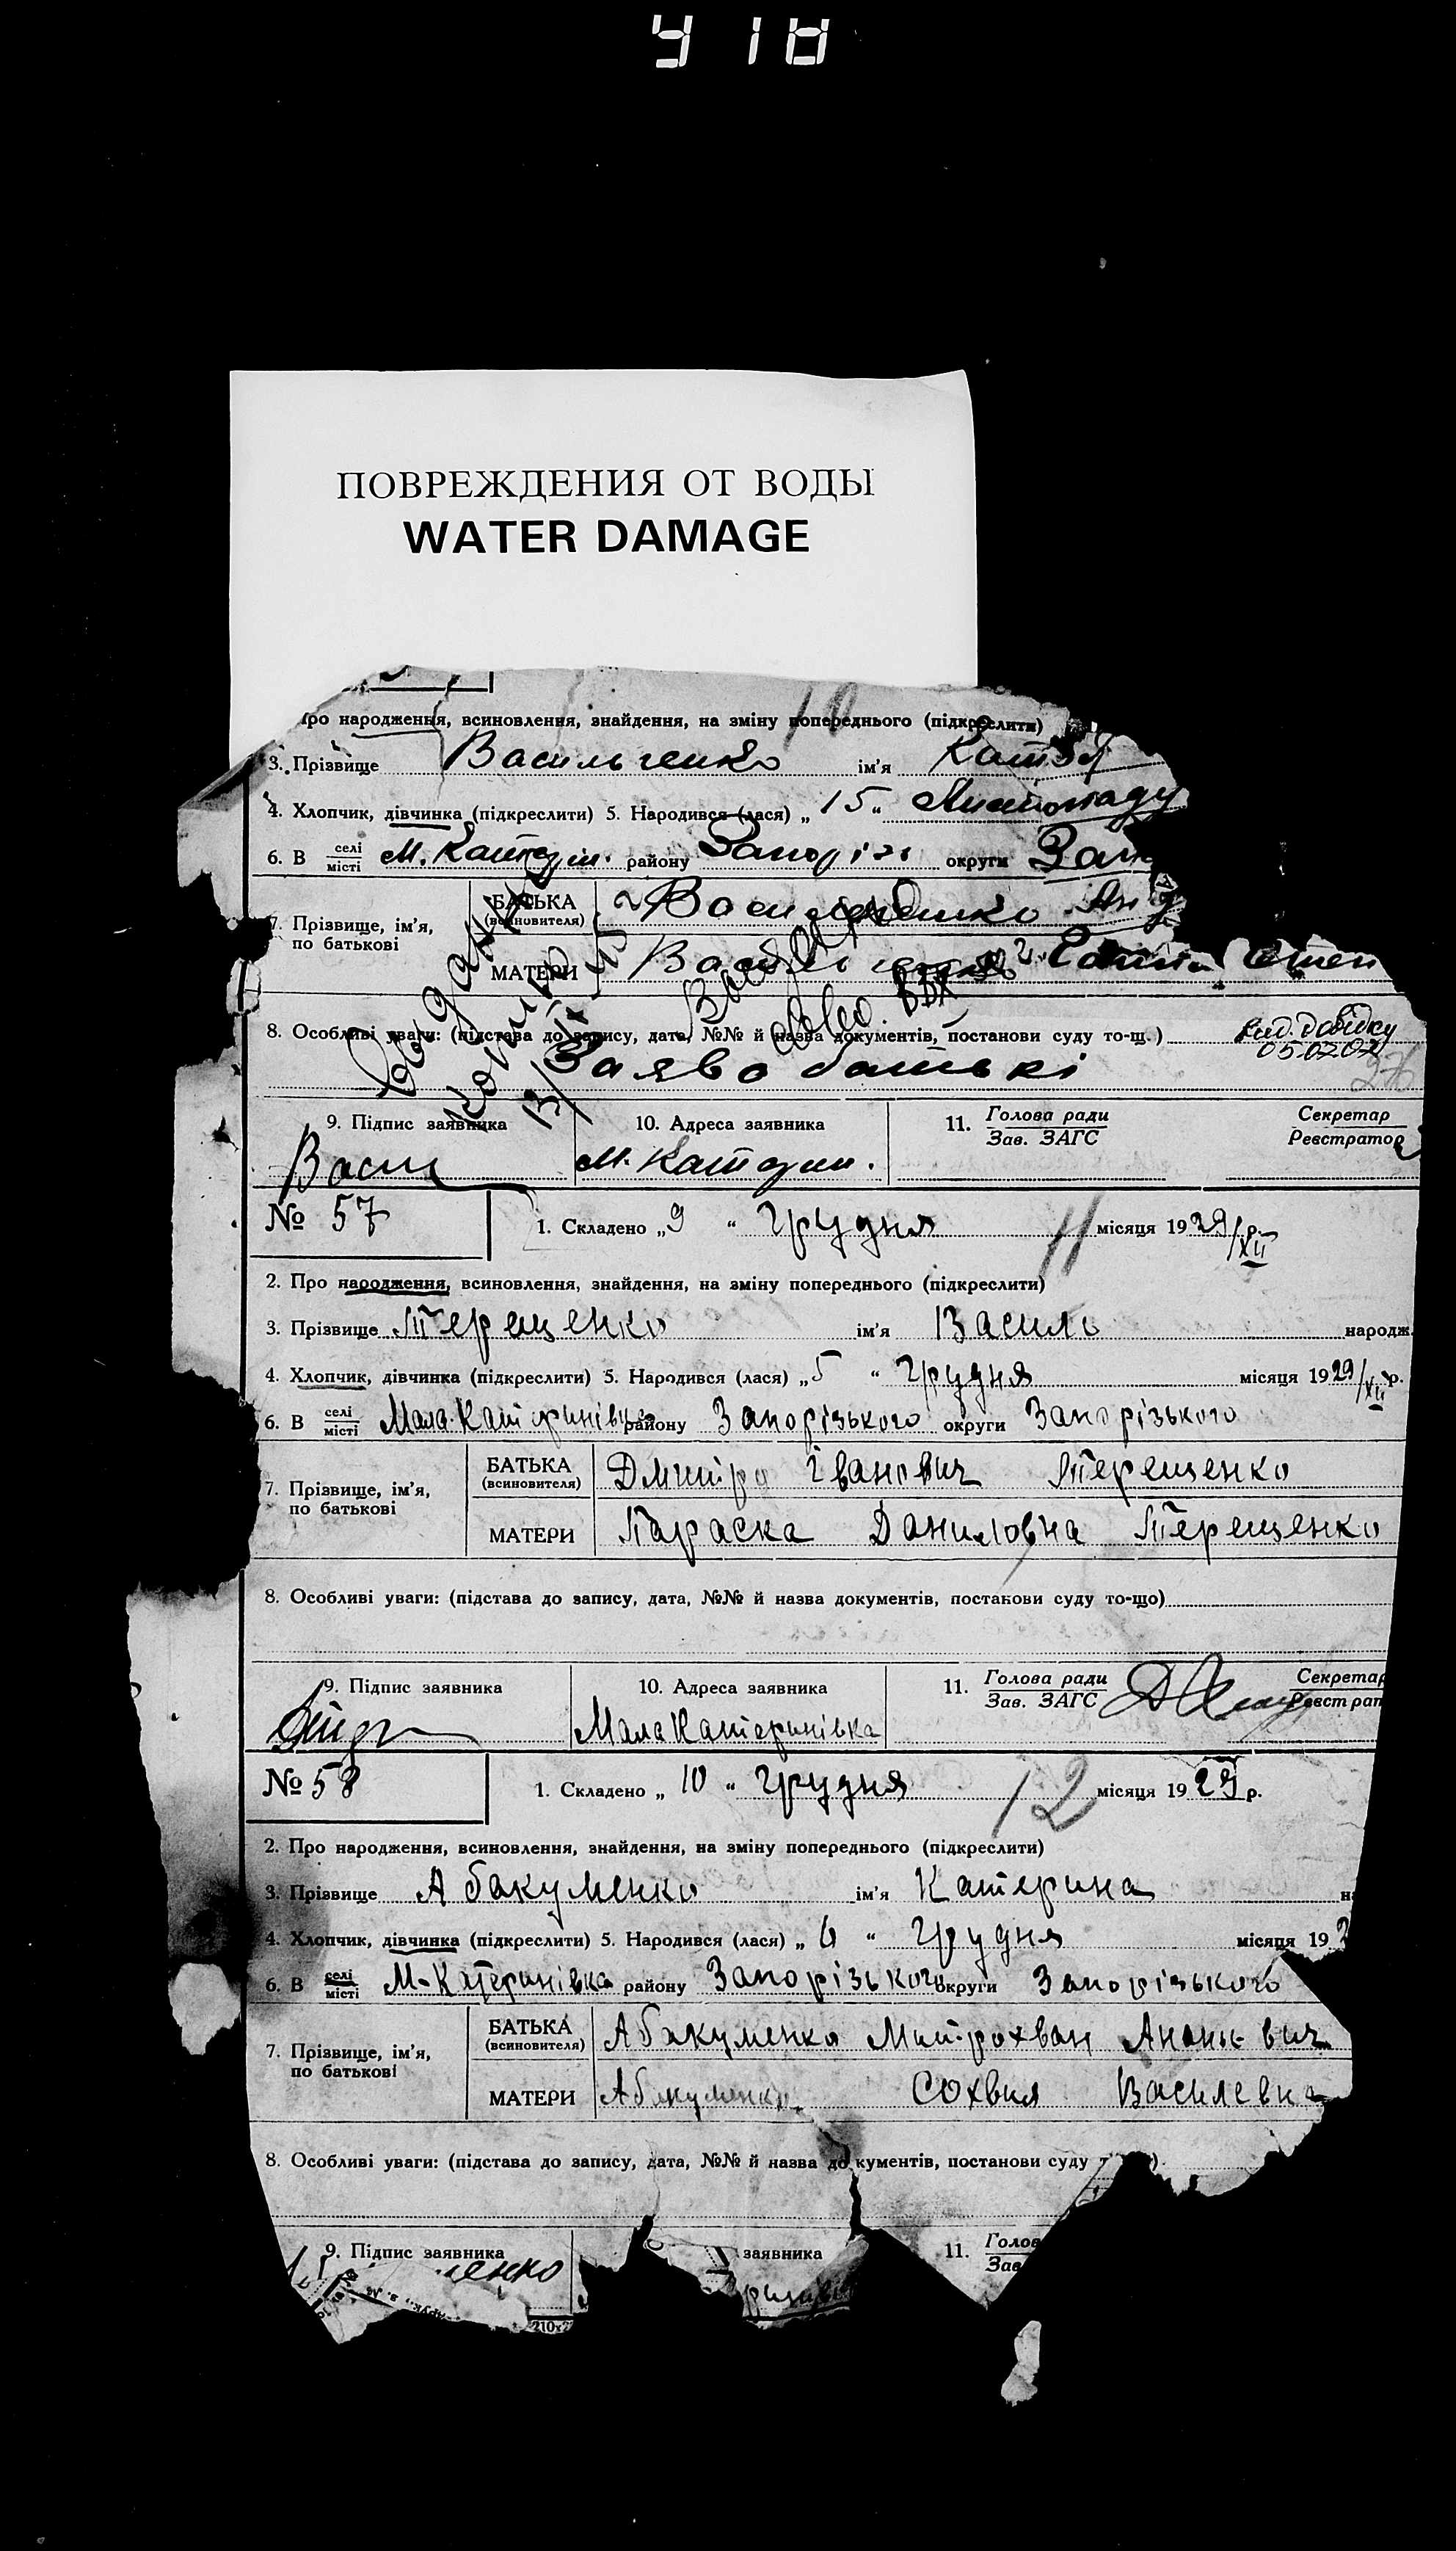 ПОВРЕЖДЕНИЯ ОТ ВОДЫ
WATER DAMAGE
10
Про народження, всиновлення, знайдення, на зміну попереднього (підкреслити)
3. Прізвище Васильченко ім'я
4. Хлопчик, дівчинка (підкреслити) 5. Народився (лася) „ 15 “ Листопаду
6. В селі місті М. Катерин. району Запоріз округи Зап
7. Прізвище, ім'я, по батькові
БАТЬКА (всиновителя) Васильченко Анд
МАТЕРИ
8. Особливі уваги: (підстава до запису, дата, №№ й назва документів, постанови суду то-щ.) вид. довідку
05.02.02
Заява батькі
9. Підпис заявника 10. Адреса заявника 11. Голова ради Зав. ЗАГС Секретар Реєстратор
Васи М. Катерин.
№ 57 1. Складено „ 9 “ грудня 11 місяця 1929/XII р.
2. Про народження, всиновлення, знайдення, на зміну попереднього (підкреслити)
3. Прізвище Терещенко ім'я Василь народж.
4. Хлопчик, дівчинка (підкреслити) 5. Народився (лася) „ 5 “ грудня місяця 1929/XII р.
6. В селі місті Мала-Катеринівка району Запорізького округи Запорізького
7. Прізвище, ім'я, по батькові
БАТЬКА (всиновителя) Дмитро Іванович Терещенко
МАТЕРИ Параска Даниловна Терещенко
8. Особливі уваги: (підстава до запису, дата, №№ й назва документів, постанови суду то-що)
9. Підпис заявника 10. Адреса заявника 11. Голова ради Зав. ЗАГС Секретар
Мала Катеринівка
№ 58 1. Складено „ 10 “ грудня 12 місяця 1929 р.
2. Про народження, всиновлення, знайдення, на зміну попереднього (підкреслити)
3. Прізвище Абакуменко ім'я Катерина
4. Хлопчик, дівчинка (підкреслити) 5. Народився (лася) „ 6 “ грудня місяця 192
6. В селі місті М-Катеринівка району Запорізького округи Запорізького
7. Прізвище, ім'я, по батькові
БАТЬКА (всиновителя) Абакуменко Митрохван Ананьевич
МАТЕРИ Абакуменко Сохвия Василевна
8. Особливі уваги: (підстава до запису, дата, №№ й назва документів, постанови суду
9. Підпис заявника заявника 11. Голов Зав
енко